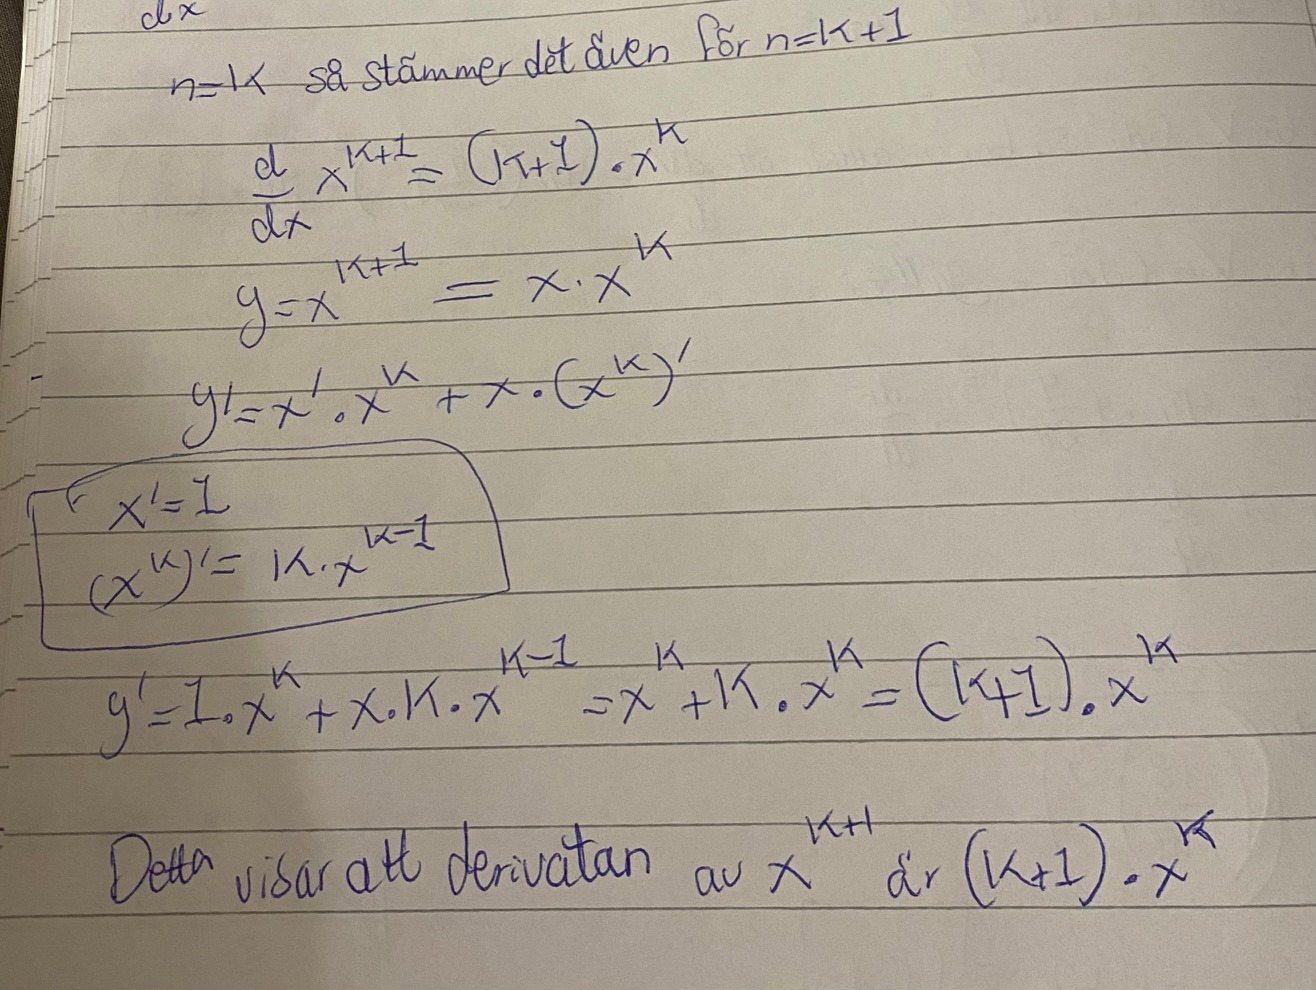 dx
n=K så stämmer det även för n=K+1
d/dx x^{K+1} = (K+1)·x^K
y=x^{K+1} = x·x^K
y'=x'·x^K + x·(x^K)'
x'=1
(x^K)'= K·x^{K-1}
y'=1·x^K + x·K·x^{K-1} =x^K+K·x^K=(K+1)·x^K
Detta visar att derivatan av x^{K+1} är (K+1)·x^K